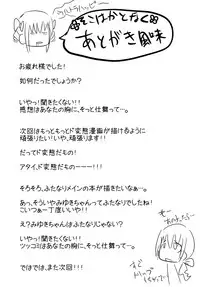 ウルトラハッピー
あとがき風味
お疲れ様でした!
如何だったでしょうか?
いやっ!聞きたくない!!
感想はあなたの胸に、そっと仕舞って…。
次回はもっともっとド変態漫画が描けるように
頑張りたいです!いや、頑張ります!!
だってド変態だもの!
アタイ、ド変態だものーーー!!!
そろそろ、ふたなりメインの本が描きたいなぁ…。
あっ、そういやみゆきちゃんってふたなりでしたね!
こいつぁ一丁座いですや!!
え?みゆきちゃんはふたなりじゃない?
いやっ!!聞きたくない!!
ツッコミはあなたの胸に、そっと仕舞って…。
ではでは、また次回!!!